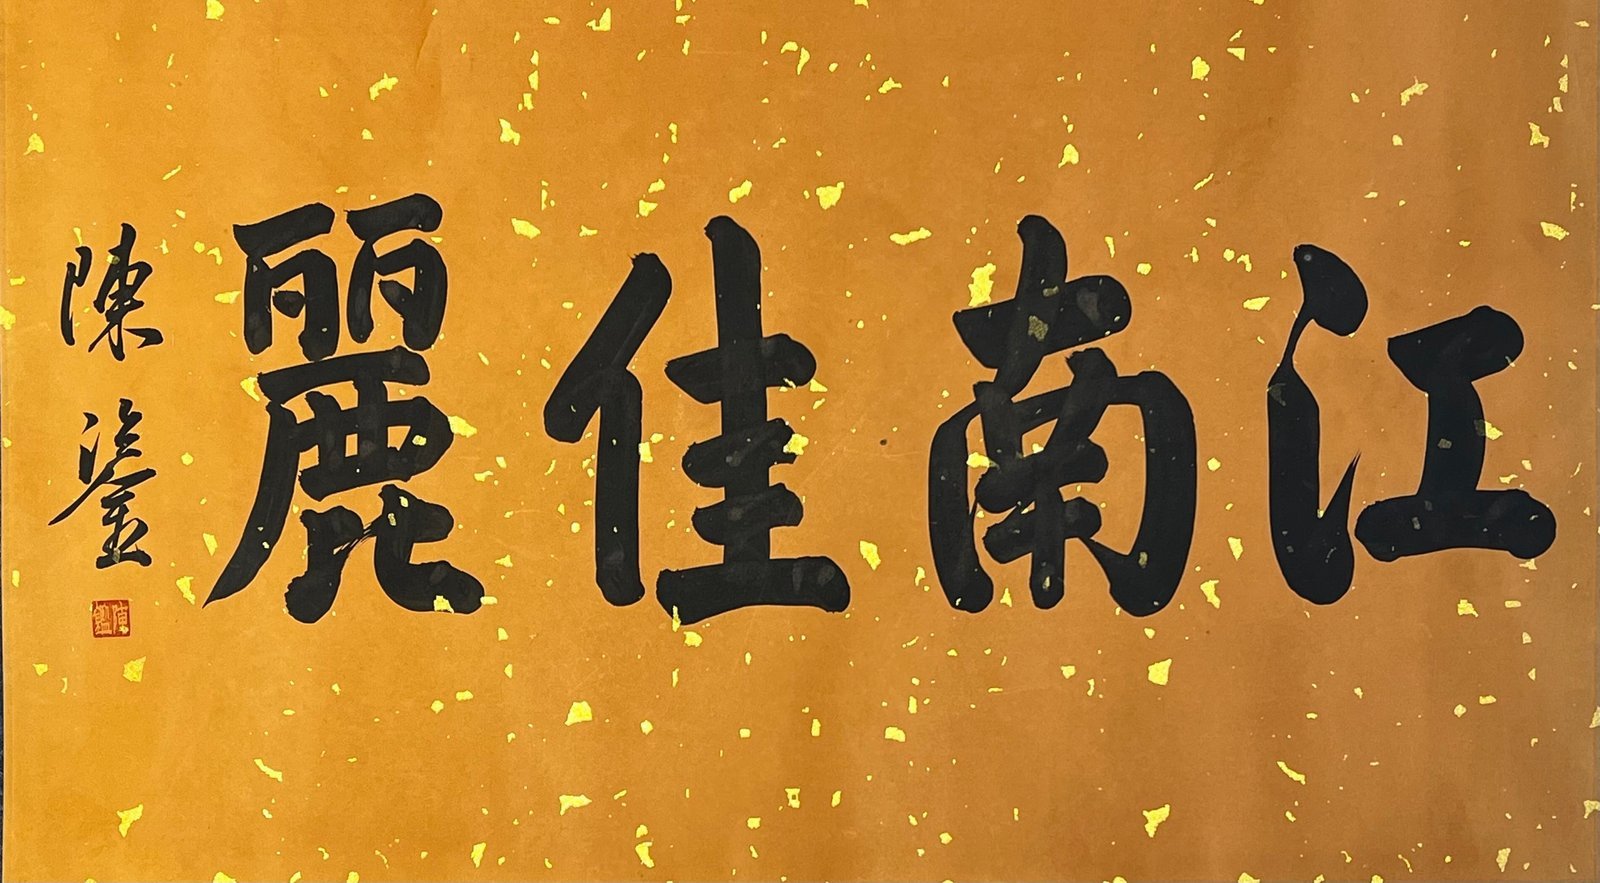 江南佳麗
陳鎏